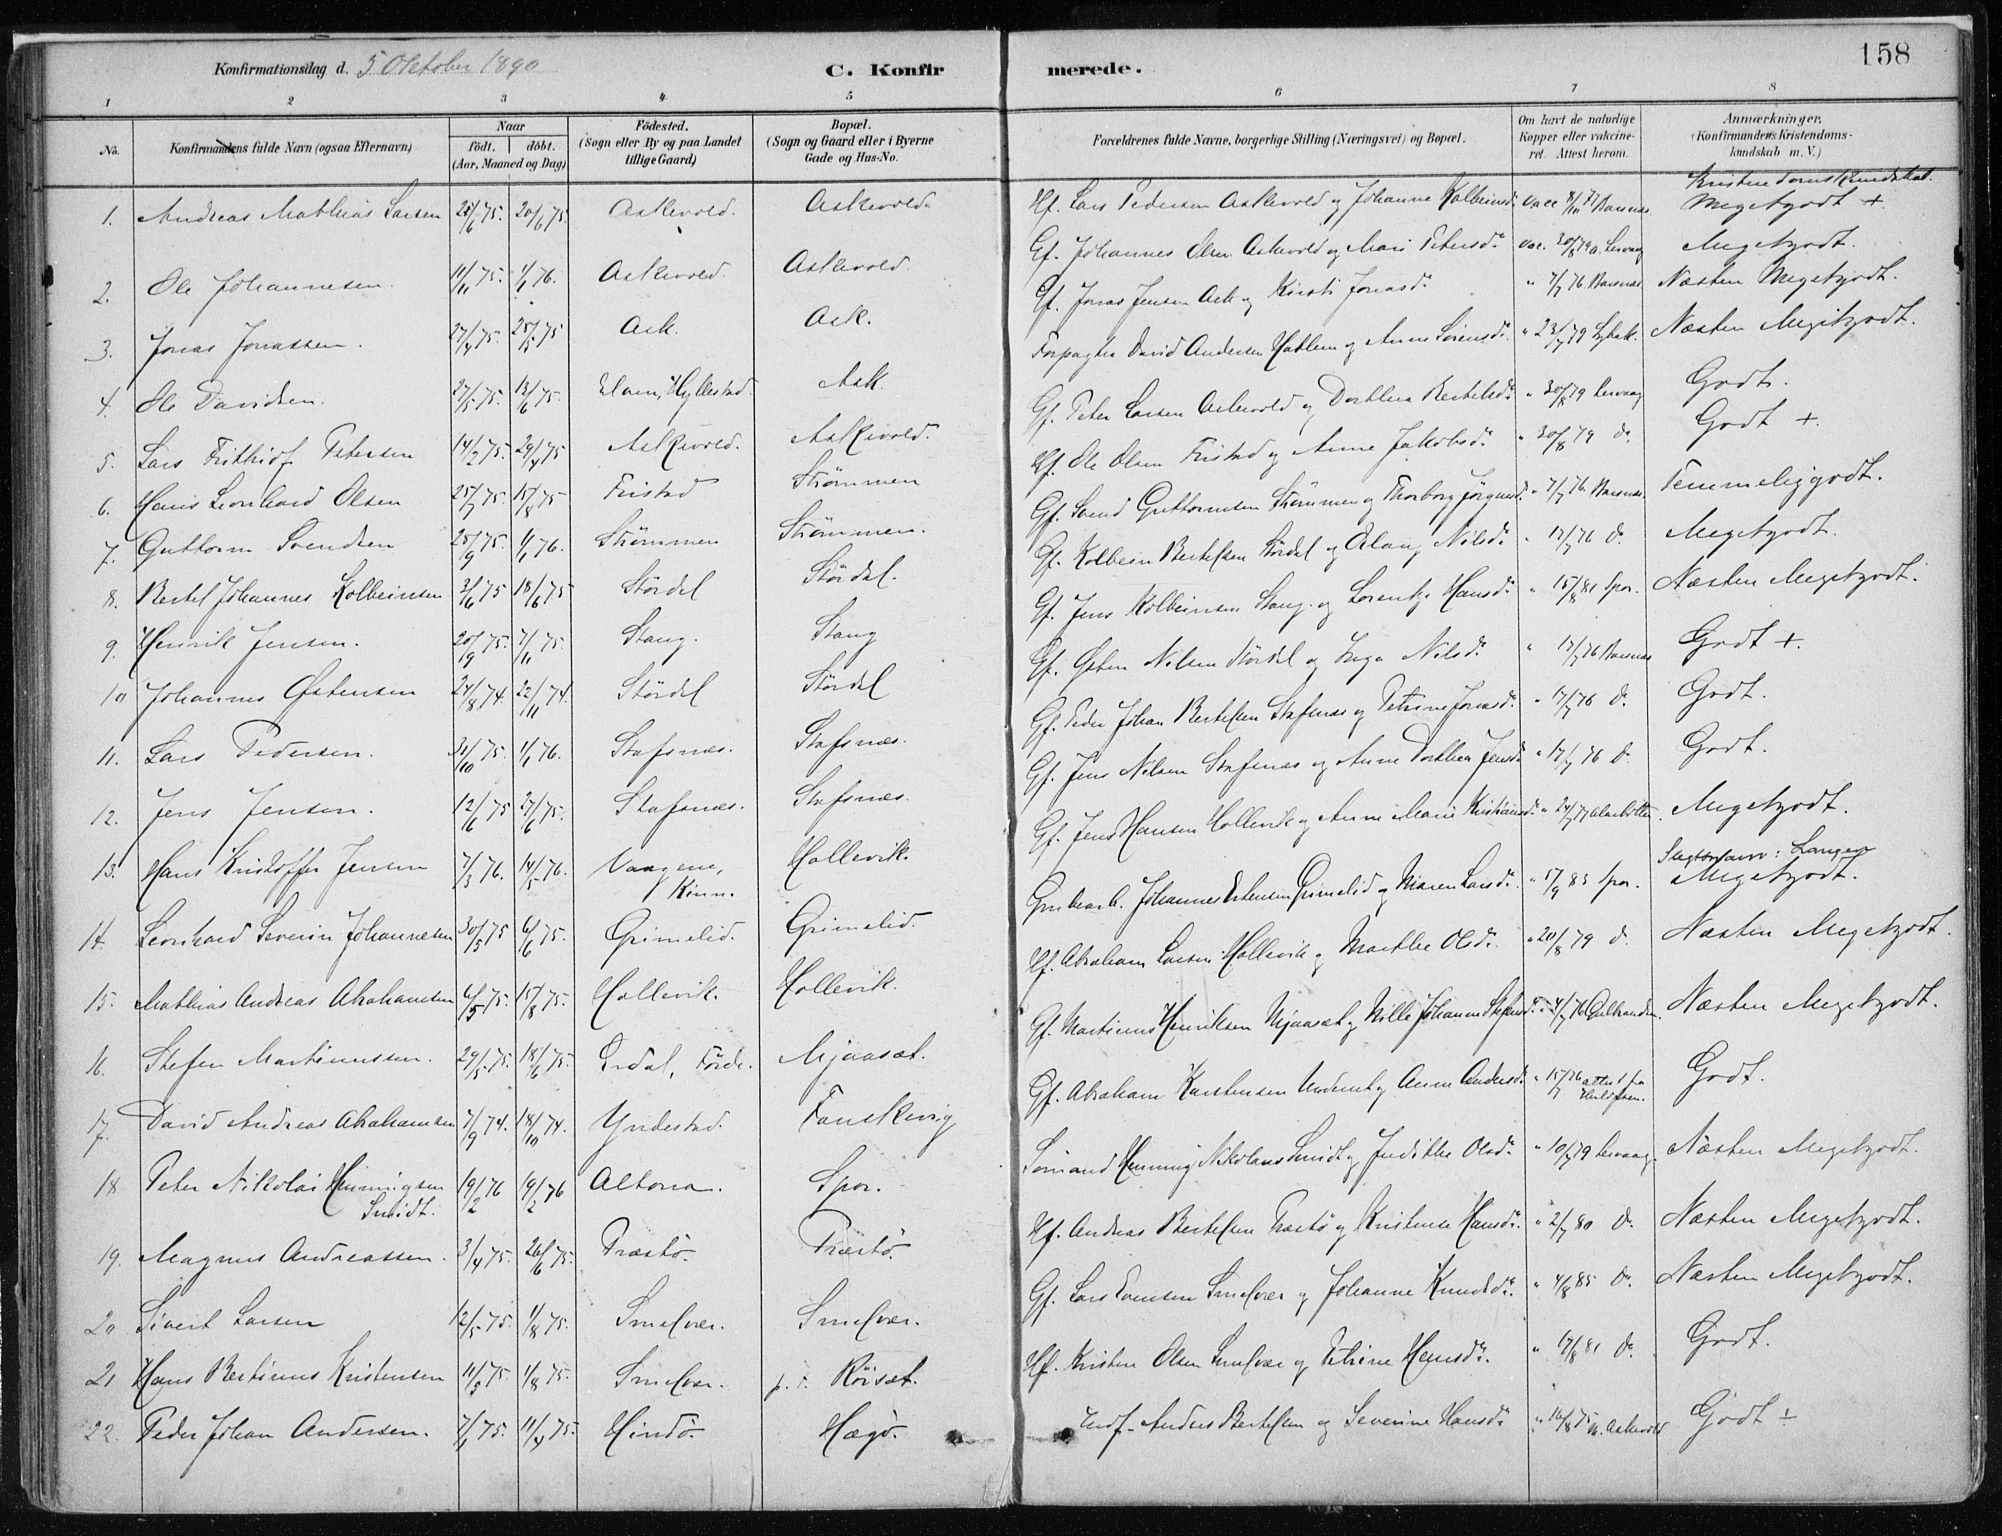 158
Konfirmationsdag d. 5 Oktober 1890
C. Konfirmerede.
1 2 3 4 5 6 7 8
No. Konfirmandens fulde Navn (ogsaa Efternavn) Naar födt. döbt. (Aar, Maaned og Dag) Födested. (Sogn eller By og paa Landet tillige Gaard) Bopæl. (Sogn og Gaard eller i Byerne Gade og Hus-No. Forældrenes fulde Navne, borgerlige Stilling (Næringsvei) og Bopæl. Om havt de naturlige Kopper eller vakcineret. Attest herom. Anmærkninger. (Konfirmandens Kristendomskundskab m. V.)
Kristendomskundskab.
1. Andreas Mathias Larsen 75. 20/6 75. Askevold. Askevold. Hf. Lars Pedersen Askevold og Johanne Kolbeinsd. vacc Barsnæs Megetgodt +
2. Ole Johannesen. 11/11 75. 1/1 76. Askevold. Askevold. Gf. Johannes Olsen Askevold og Mari Petersd. vac. 30/8 79 Megetgodt.
3. Jonas Jonassen. 27/4 75. 25/5 75 Ask. Ask. Gf. Jonas Jensen Ask og Kirsti Jonasd. " 7/7 76 Barsnæs Næsten Megetgodt.
4. Ole Davidsen. 27/5 75. 13/6 75. Hyllestad. Ask. Forpagter David Andersen Hatlem og Anne Sörensd. " 23/7 79 Næsten Megetgodt.
5. Lars Frithjof Petersen 14/2 75. 29/4 75 Askevold. Askevold. Gf. Peter Larsen Askevold og Dorthea Bertelsd. " 30/8 79 Godt.
6. Hans Leonhard Olsen 25/7 75. 15/8 75 Fristad Strömmen Hf. Ole Olsen Fristad og Anne Jakobsd. " 30/8 79 do. Godt +.
7. Guttorm Svendsen 25/9 75. 1/1 76. Strömmen Strömmen. Gf. Svend Guttormsen Strömmen og Thorborg " 7/7 76 Barsnæs. Temmeliggodt.
8. Bertel Johannes Kolbeinsen 3/6 75 18/6 75 Stördal Stördal. Gf. Kolbein Bertelsen Stördal og Nilsd. " 17/7 76 do. Megetgodt.
9. Henrik Jensen. 20/9 75. 7/11 75. Stang. Stang Gf. Jens Kolbeinsen Stang og Hansd. " 15/8 81 Spor. Næsten Megetgodt.
10 Johannes Østensen 24/8 74. 22/11 74. Stördal Stördal Gf. Østen Nilsen Stördal og Inga Nilsd. " 17/7 76 Barsnæs Godt +.
11. Lars Pedersen. 31/10 75. 1/1 76. Stafsnæs. Stafsnæs. Gf. Peder Johan Bertelsen Stafsnæs og Petrine Jonasd. " 17/7 76 do. Godt.
12. Jens Jensen. 12/6 75 27/6 75. Stafsnæs. Stafsnæs. Gf. Jens Nilsen Stafsnæs og Anne Dorthea Jensd. " 17/7 76 do. Godt.
13. Hans Kristoffer Jensen 7/3 76. 14/5 76. Vaagene, Kinn. Hollevik. Gf. Jens Hansen Hollevik og Anne Marie " 24/7 77 Megetgodt.
Slægtsnavn: Langen
14. Leonhard Severin Johannesen 30/5 75 6/6 75. Grimelid. Grimelid. Grubearb. Johannes Grimelid og Maren Larsd. 83 Spor. Megetgodt.
15. Mathias Andreas Abrahamsen 6/5 75. 15/8 75. Hollevik. Hollevik. Hf. Abraham Larsen Hollevik og Marthe Olsd. " 20/8 79 do. Næsten Megetgodt.
16. Stefen Martinussen. 29/5 75. 18/6 75. Erdal, Förde. Mjaasæt. Gf. Martinus Henriksen Mjaasæt og Nille Johanne " 4/7 76 Næsten Megetgodt.
17. David Andreas Abrahamsen 7/9 74. 18/10 74. Yndestad. Fanskevig Gf. Abraham Karstensen og Anne Andersd. " 15/7 76 attest fra Godt.
18 Peter Nikolai Henningsen Smidt. 19/2 76 19/2 76 Altona. Spor. Sömand Henning Nikolaus Smidt og Judithe Olsd. " 10/7 79 Næsten Megetgodt.
19. Magnus Andreassen. 3/4 75. 26/6 75. Præstö. Præstö. Hf. Andreas Bertelsen Præstö og Kristense Hansd. " 2/7 80 do. Næsten Megetgodt.
20 Sivert Larsen 12/5 75. 1/8 75. Smelvær. Smelvær. Gf. Lars Evensen Smelvær og Johanne Knudsd. " 4/8 85 do. Næsten Megetgodt.
21 Hans Bertinus Kristensen 11/5 75. 1/8 75. Smelvær. p. t. Röisæt. Hf. Kristen Olsen Smelvær og Petrine Hansd. " 17/8 81 do. Godt.
22. Peder Johan Andersen. 7/1 75. 11/4 75. Hindö. Hægö. Indf. Anders Bertelsen og Severine Hansd. " 16/8 75 Askevold Godt ÷